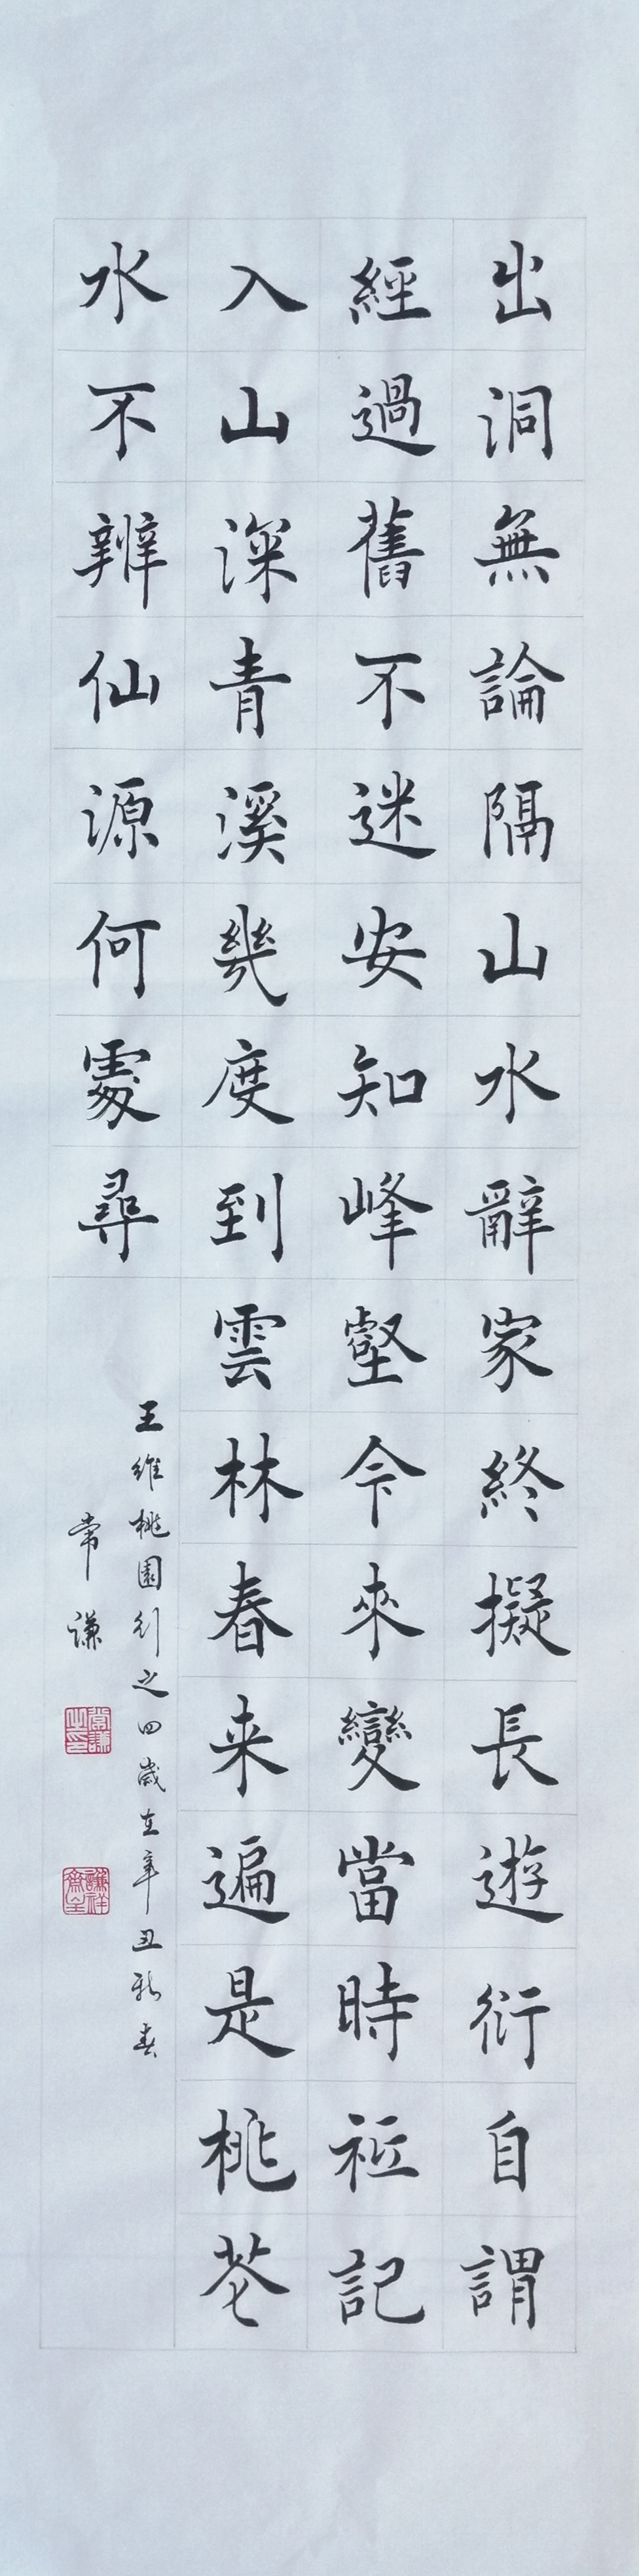 出洞無論隔山水辭家終擬長遊衍自謂
經過舊不迷安知峰壑今來變當時祗記
入山深青溪幾度到雲林春来遍是桃花
水不辨仙源何處尋
王維桃園行之四歲在辛丑新春
常谦